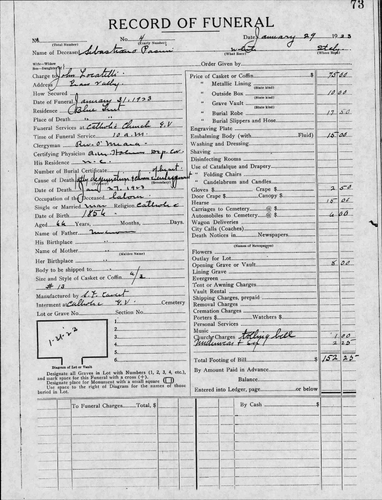 73
RECORD OF FUNERAL
No. 4 Date January 29 1923
(Total Number) (Yearly Number)
Name of Deceased White Italy
(What Race) (Where Born)
Charge to John Locatelli
Address
How Secured
Date of Funeral January 31, 1923
Place of Death Blue
Funeral Services at Catholic Church
Time of Funeral Service 10 a.m.
Clergyman Rev. O'Meara
Certifying Physician
His Residence
Number of Burial Certificate
Cause of Death
Date of Death Jany 27, 1923
Occupation of the Deceased Laborer
Single or Married Religion Catholic
Date of Birth 1856
Aged 66 Years, Months, Days
Name of Father Unknown
His Birthplace
Name of Mother
(Maiden Name)
Her Birthplace
Body to be shipped to
Size and Style of Casket or Coffin 6/2
# 13
Manufactured by
Interment at Catholic Cemetery
Lot or Grave No. Section No.
1
2
3
4
5
6
Diagram of Lot or Vault
Designate all Graves in Lot with Numbers (1, 2, 3, 4, etc.),
and mark space for this Funeral with a cross (+).
Designate place for Monument with a small square
Use space to right of Diagram for the names of those
buried in Lot.
Price of Casket or Coffin $ 75 00
" Metallic Lining
(State Kind)
" Outside Box 10 00
(State Kind)
" Grave Vault
(State Kind)
" Burial Robe 17 50
(State Kind)
" Burial Slippers and Hose
Engraving Plate
Embalming Body (with Fluid) 15 00
Washing and Dressing
Shaving
Disinfecting Rooms
Use of Catafalque and Drapery
" Folding Chairs
" Candelabrum and Candles
Gloves $ Crape $ 2 50
Door Crape $ Canopy $
Hearse 15 00
Carriages to Cemetery
Automobiles to Cemetery 6 00
Wagon Deliveries
City Calls (Coaches)
Death Notices in Newspapers
(Names of Newspapers)
Flowers
Outlay for Lot
Opening Grave or Vault 8 00
Lining Grave
Evergreen
Tent or Awning Charges
Vault Rental
Shipping Charges, prepaid
Removal Charges
Cremation Charges
Porters $ Watchers $
Personal Services
Music
Church Charges tolling bell 1 00
2 25
Total Footing of Bill $ 152 25
By Amount Paid in Advance
Balance
Entered into Ledger, page or below
To Funeral Charges, Total $
By Cash $